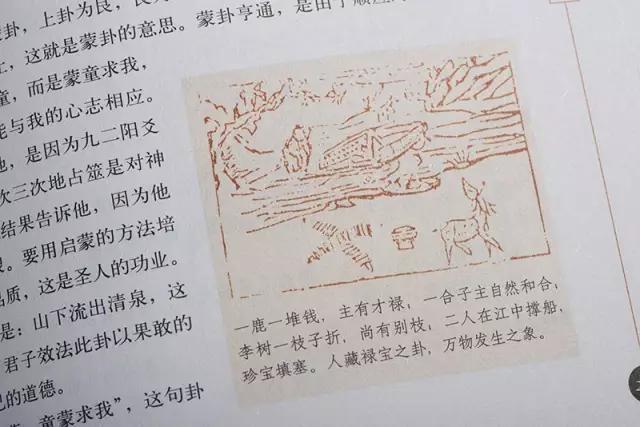 蒙卦，上卦为艮，艮为
，这就是蒙卦的意思。蒙卦亨通，是由于顺应
童，而是蒙童求我，
能与我的心志相应。
他，是因为九二阳爻
次三次地占筮是对神
结果告诉他，因为他
。要用启蒙的方法培
品质，这是圣人的功业。
是：山下流出清泉，这
君子效法此卦以果敢的
己的道德。
童蒙求我”，这句卦
一鹿一堆钱，主有才禄；一合子主自然和合；
李树一枝子折，尚有别枝；二人在江中撑船，
珍宝填塞。人藏禄宝之卦，万物发生之象。